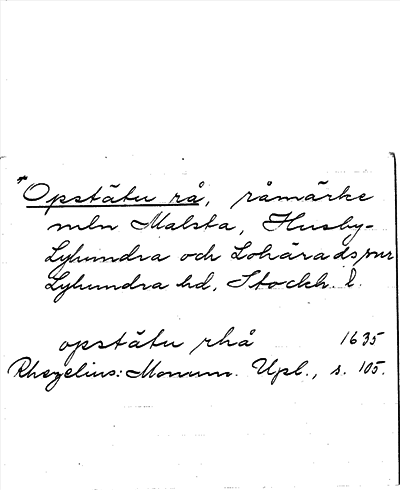 *Opstätu rå, råmärke
mln Malsta, Husby-
Lyhundra och Lohärads snr
Lyhundra hd, Stockh. l.
opstätu rhå 1635
Rhezelius: Monum. Upl., s. 105.